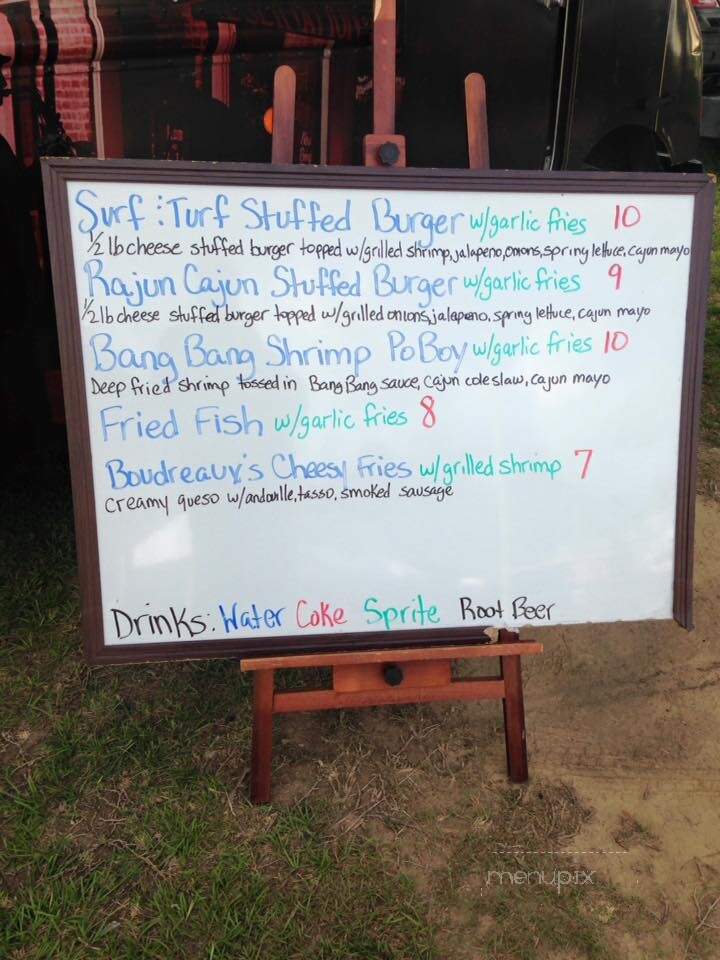 Surf : Turf Stuffed Burger w/garlic fries 10
1/2 lb cheese stuffed burger topped w/grilled shrimp, jalapeno, onions, spring lettuce, cajun mayo
Rajun Cajun Stuffed Burger w/garlic fries 9
1/2 lb cheese stuffed burger topped w/grilled onions, jalapeno, spring lettuce, cajun mayo
Bang Bang Shrimp PoBoy w/garlic fries 10
Deep fried shrimp tossed in Bang Bang sauce, cajun coleslaw, cajun mayo
Fried Fish w/garlic fries 8
Boudreaux's Cheesy Fries w/grilled shrimp 7
creamy queso w/andouille, tasso, smoked sausage
Drinks: Water Coke Sprite Root Beer
menupix